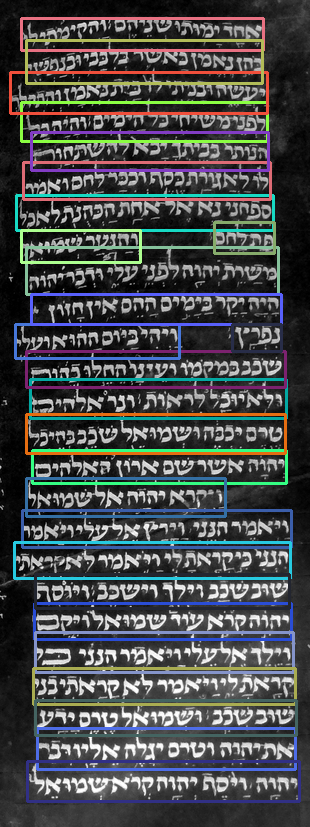 אחד ימותו שניהם והקימתי לי
כהן נאמן כאשר בלבבי ובנפשי
יעשה ובניתי לו בית נאמן והתהלך
לפני משיחי כל הימים והיה כל
הנותר בביתך יבוא להשתחות
לו לאגורת כסף וככר לחם ואמר
ספחני נא אל אחת הכהנות לאכל
פת לחם והנער שמואל
משרת יהוה לפני עלי ודבר יהוה
היה יקר בימים ההם אין חזון
נפרץ ויהי ביום ההוא ועלי
שכב במקמו ועינו החלו כהות
ולא יוכל לראות ונר אלהים
טרם יכבה ושמואל שכב בהיכל
יהוה אשר שם ארון האלהים
ויקרא יהוה אל שמואל
ויאמר הנני וירץ אל עלי ויאמר
הנני כי קראת לי ויאמר לא קראתי
שוב שכב וילך וישכב ויוסף
יהוה קרא עוד שמואל ויקם
וילך אל עלי ויאמר הנני כי
קראת לי ויאמר לא קראתי בני
שוב שכב ושמואל טרם ידע
את יהוה וטרם יגלה אליו דבר
יהוה ויסף יהוה קרא שמואל